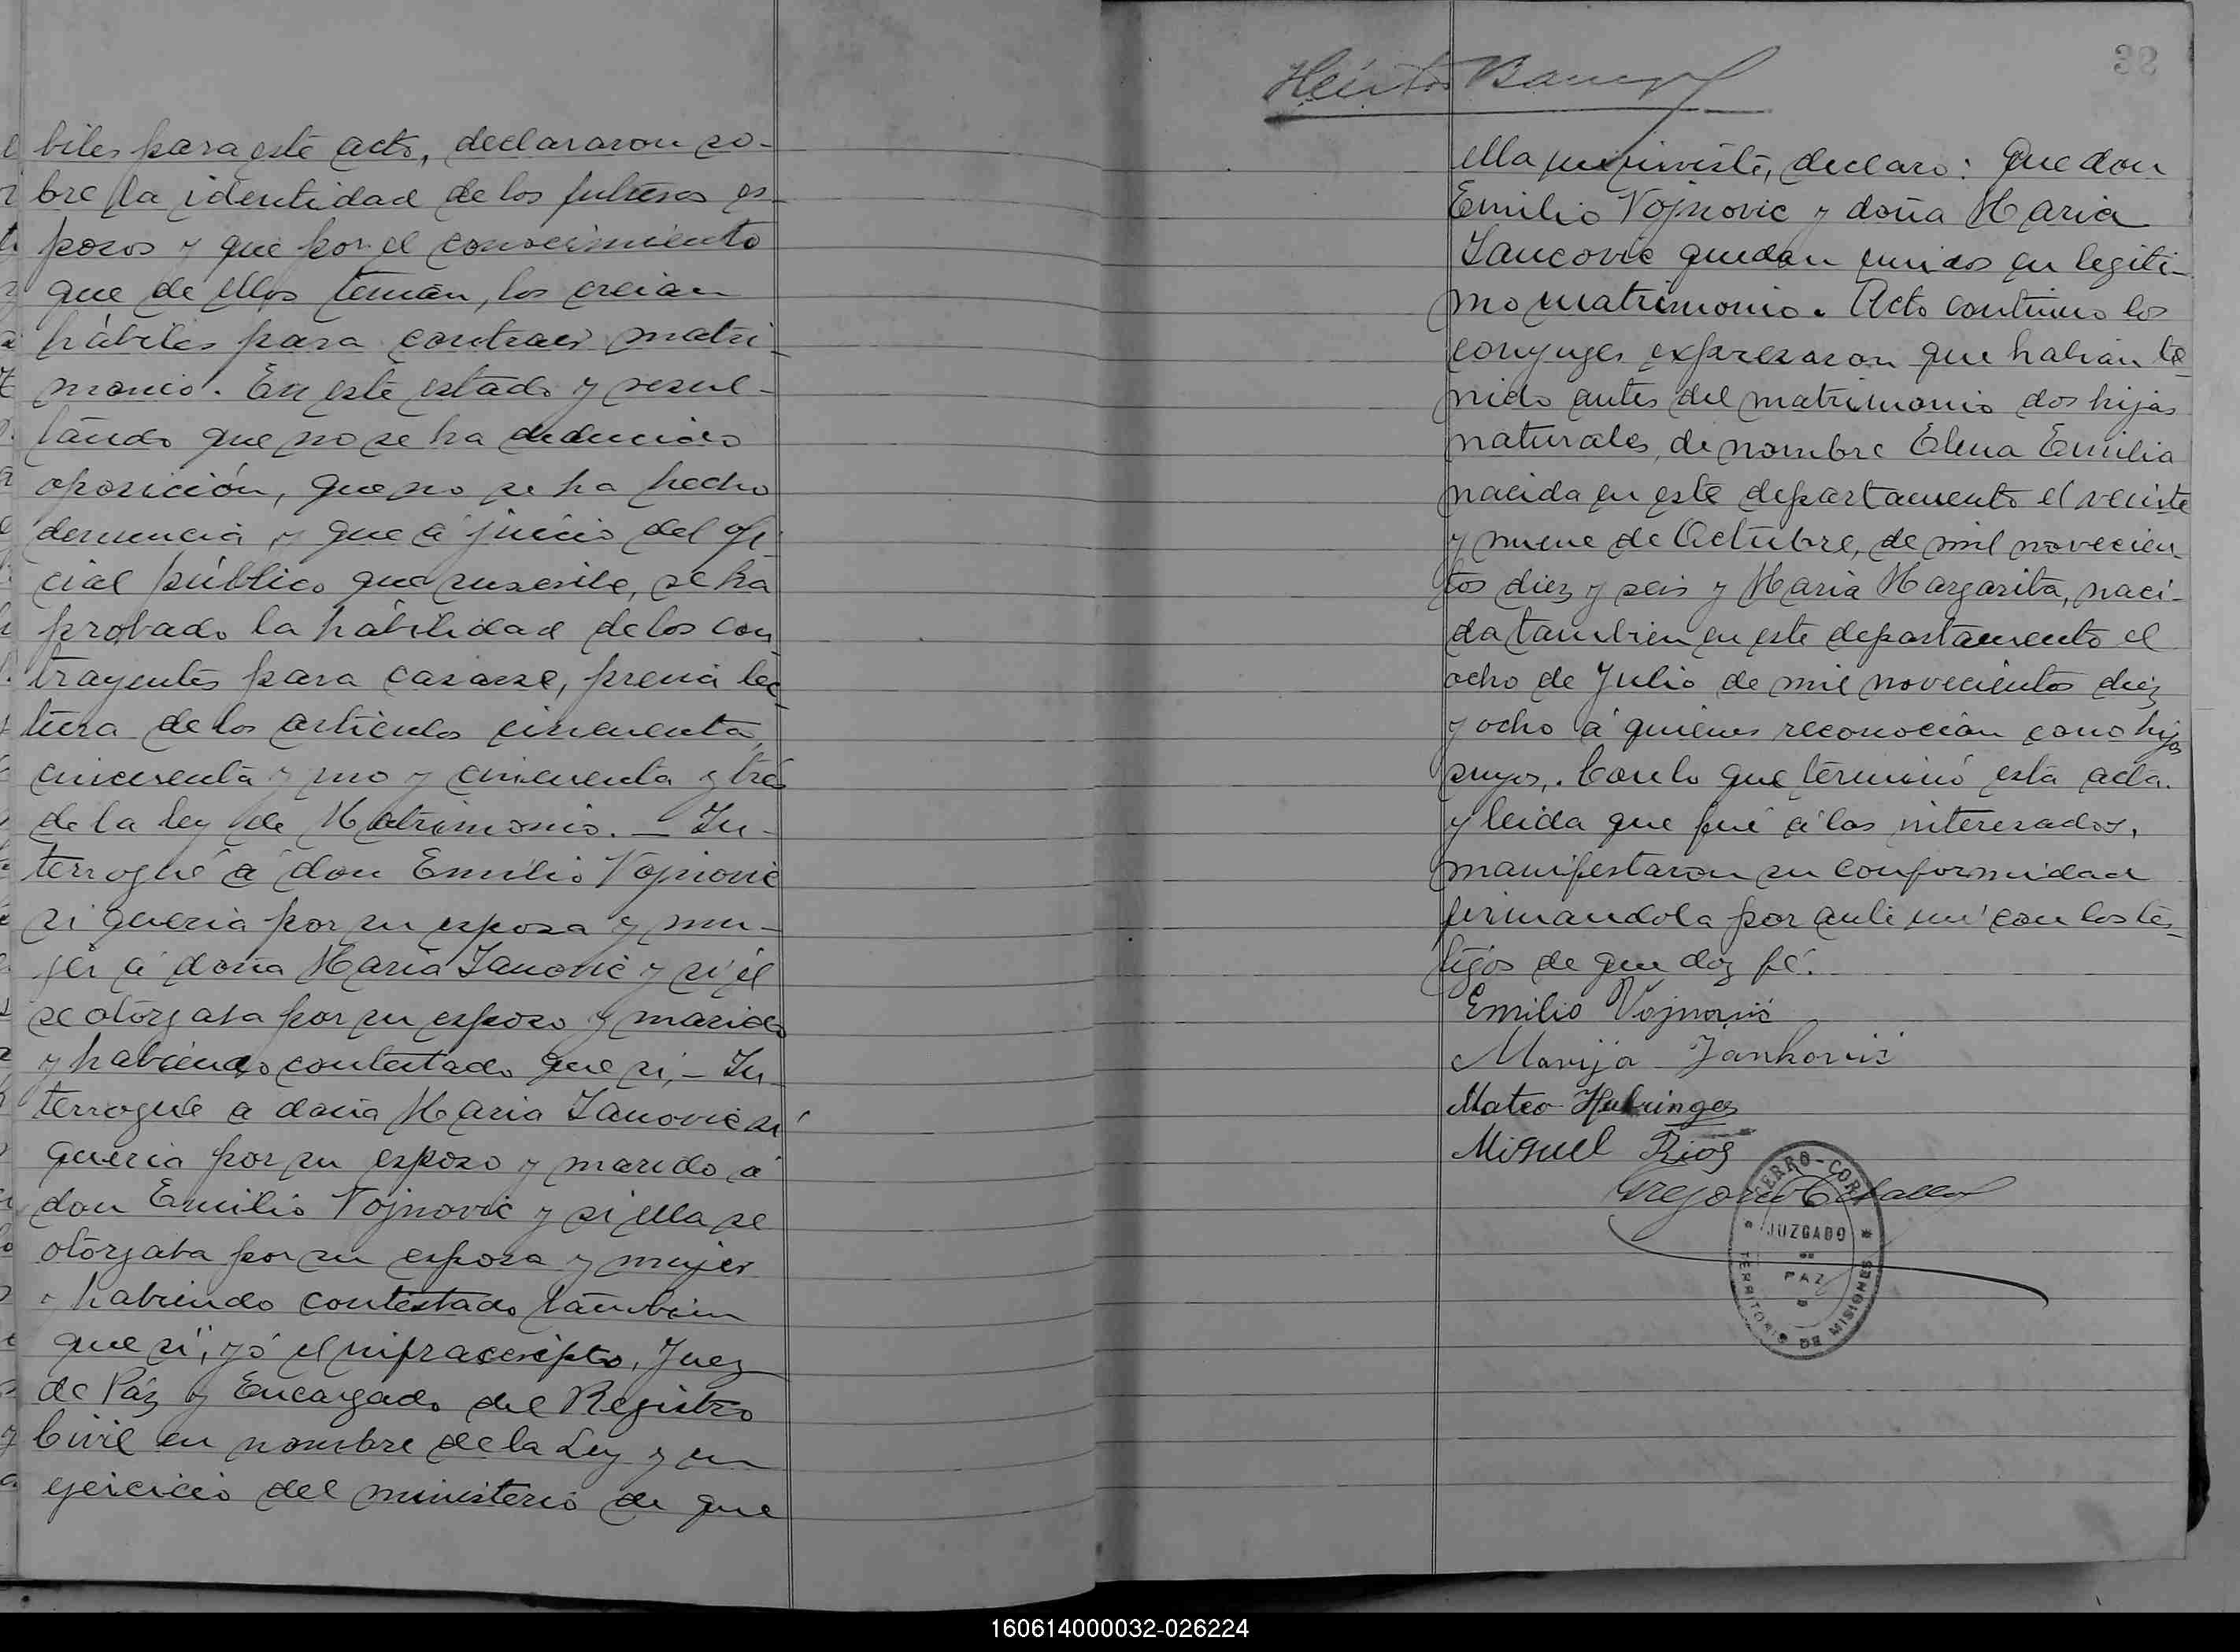 biles para este acto, declararon so-
bre la identidad de los futuros es-
posos y que por el conocimiento
que de ellos tenian, los creian
hábiles para contraer matri-
monio. En este estado y resul-
tando que no se ha deducido
oposición, que no se ha hecho
denuncia y que á juicio del ofi-
cial público que suscribe, se ha
probado la hábilidad de los con-
trayentes para casarse, previa lec-
tura de los articulos cincuenta,
cincuenta y uno y cincuenta y tres
de la ley de Matrimonio. — In-
terrogué á don Emilio Vojnovic
si queria por su esposa y mu-
jer á doña Maria Janovic y si él
se otorgaba por su esposo y marido
y habiendo contestado que si, — In-
terrogué a doña Maria Janovic si
queria por su esposo y marido á
don Emilio Vojnovic y si ella se
otorgaba por su esposa y mujer
y habiendo contestado tambien
que si, yó el infrascripto, Juez
de Páz y Encargado del Registro
Civil en nombre de la Ley y en
ejercicio del ministerio de que
38
ella me inviste, declaro: Que don
Emilio Vojnovic y doña Maria
Jancovic quedan unidos en legiti-
mo matrimonio. Acto continuo los
conyuges expresaron que habian te-
nido antes del matrimonio dos hijas
naturales, de nombre Elena Emilia
nacida en este departamento el veinte
y nueve de Octubre, de mil novecien-
tos diez y seis y Maria Margarita, naci-
da tambien en este departamento el
ocho de Julio de mil novecientos diez
y ocho á quienes reconocian como hijos
suyos,. Con lo que terminó esta acta.
y leida que fué á los interesados,
manifestaron su conformidad
firmandola por ante mi con los tes-
tigos de que doy fé.
Emilio Vojnović
Marija Janković
Mateo
Miguel Rios
Gregorio
CERRO-CORÁ
JUZGADO
DE
PAZ
TERRITORIO DE MISIONES
160614000032-026224